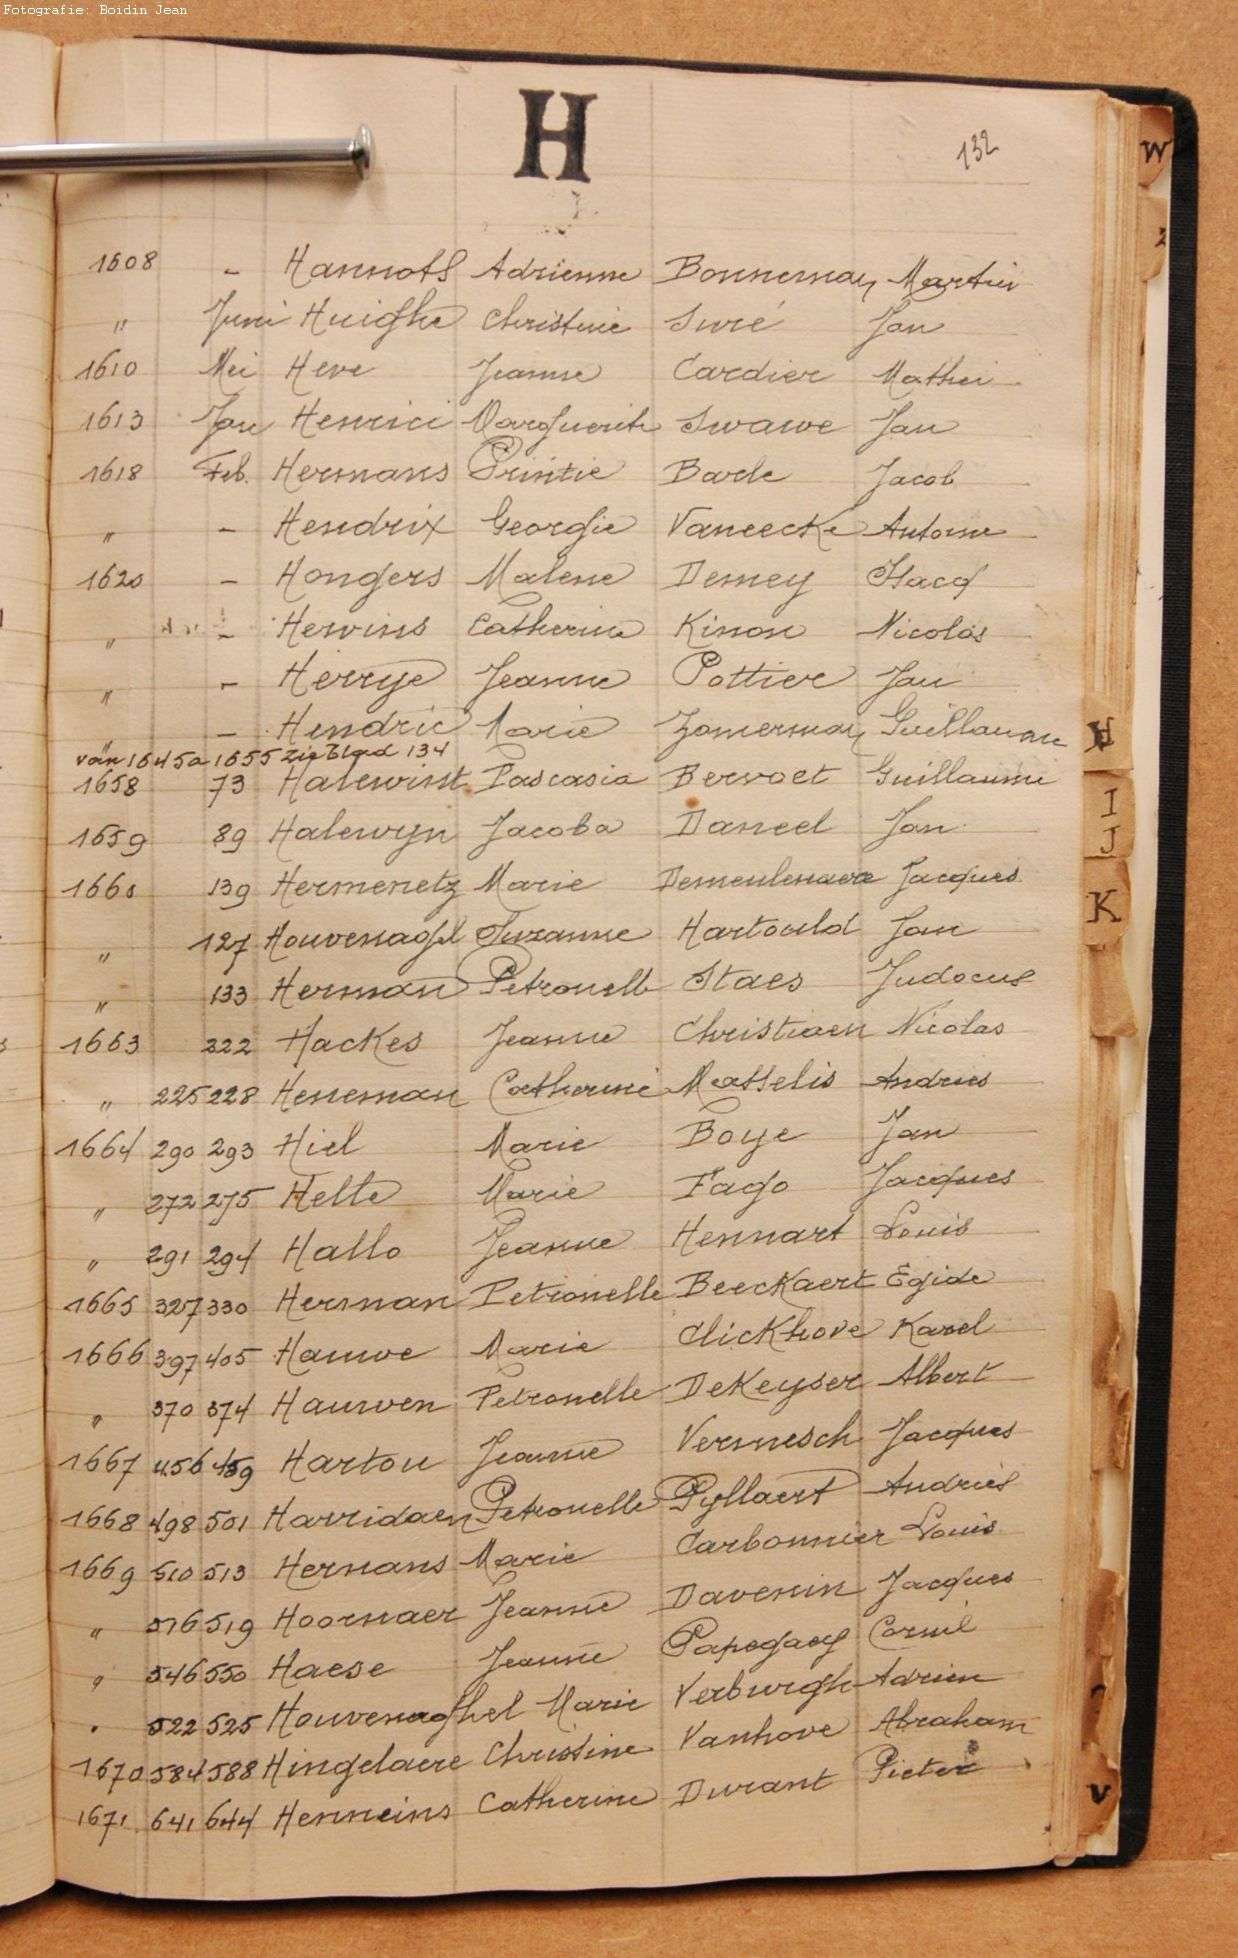 Fotografie: Boidin Jean
H
132
1608 - Hannots Adrienne Bonnemay Martin
" Juni Huighe Christine Suré Jan
1610 Mei Heve Jeanne Cardier Mathei
1613 Jan Henrici Marguerite Swawe Jan
1618 Feb. Hermans Printie Barde Jacob
" - Hendrix Georgie Vaneecke Antoine
1620 - Hongers Malene Demey
" - Hewins Catherine Kinon Nicolas
" - Herrye Jeanne Pottier Jan
" - Hendric Marie Zomerman Guillaume
van 1645 a 1655 zie blad 134
1658 73 Halewint Pascasia Bervoet Guillaume
1659 89 Halewyn Jacoba Daneel Jan
1660 139 Hermenetz Marie Demeulenaere Jacques
" 127 Houvenagel Suzanne Hartould Jan
" 133 Herman Petronelle Staes Judocus
1663 222 Hackes Jeanne Christiaen Nicolas
" 225 228 Heneman Catherine Masselis Andries
1664 290 293 Hiel Marie Boye Jan
" 272 275 Helte Marie Fago Jacques
" 291 294 Hallo Jeanne Hennart Louis
1665 327 330 Herman Petronelle Beeckaert Egide
1666 397 405 Hauwe Marie Clickhove Karel
" 370 374 Hauwen Petronelle DeKeyser Albert
1667 456 459 Hartou Jeanne Vermesch Jacques
1668 498 501 Harridaen Petronelle Pyllaert Andries
1669 510 513 Hermans Marie Carbonnier Louis
" 516 519 Hoornaer Jeanne Davenin Jacques
" 546 550 Haese Jeanne Papegaey Cornil
" 522 525 Houvenaghel Marie Verburgh Adrien
1670 584 588 Hingelaere Christine Vanhove Abraham
1671 641 644 Henneins Catherine Durant Pieter
W
H
I
J
K
V